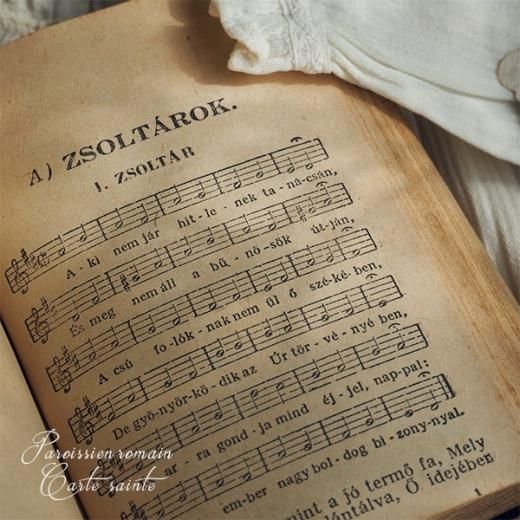 A) ZSOLTÁROK.
1. ZSOLTÁR
A - ki nem jár hit-le - nek ta-ná-csán,
És meg nem áll a bű - nö-sök út-ján,
A csú fo-lók-nak nem ül ő szé-ké-ben,
De gyö-nyör-kö-dik az Úr tör-vé-nyé ben,
ar - ra gond-ja mind éj-jel, nap-pal:
em-ber nagy bol-dog bi-zony-nyal.
mint a jó termő fa, Mely
Ő idejében
1
Paroissien romain
Carte sainte